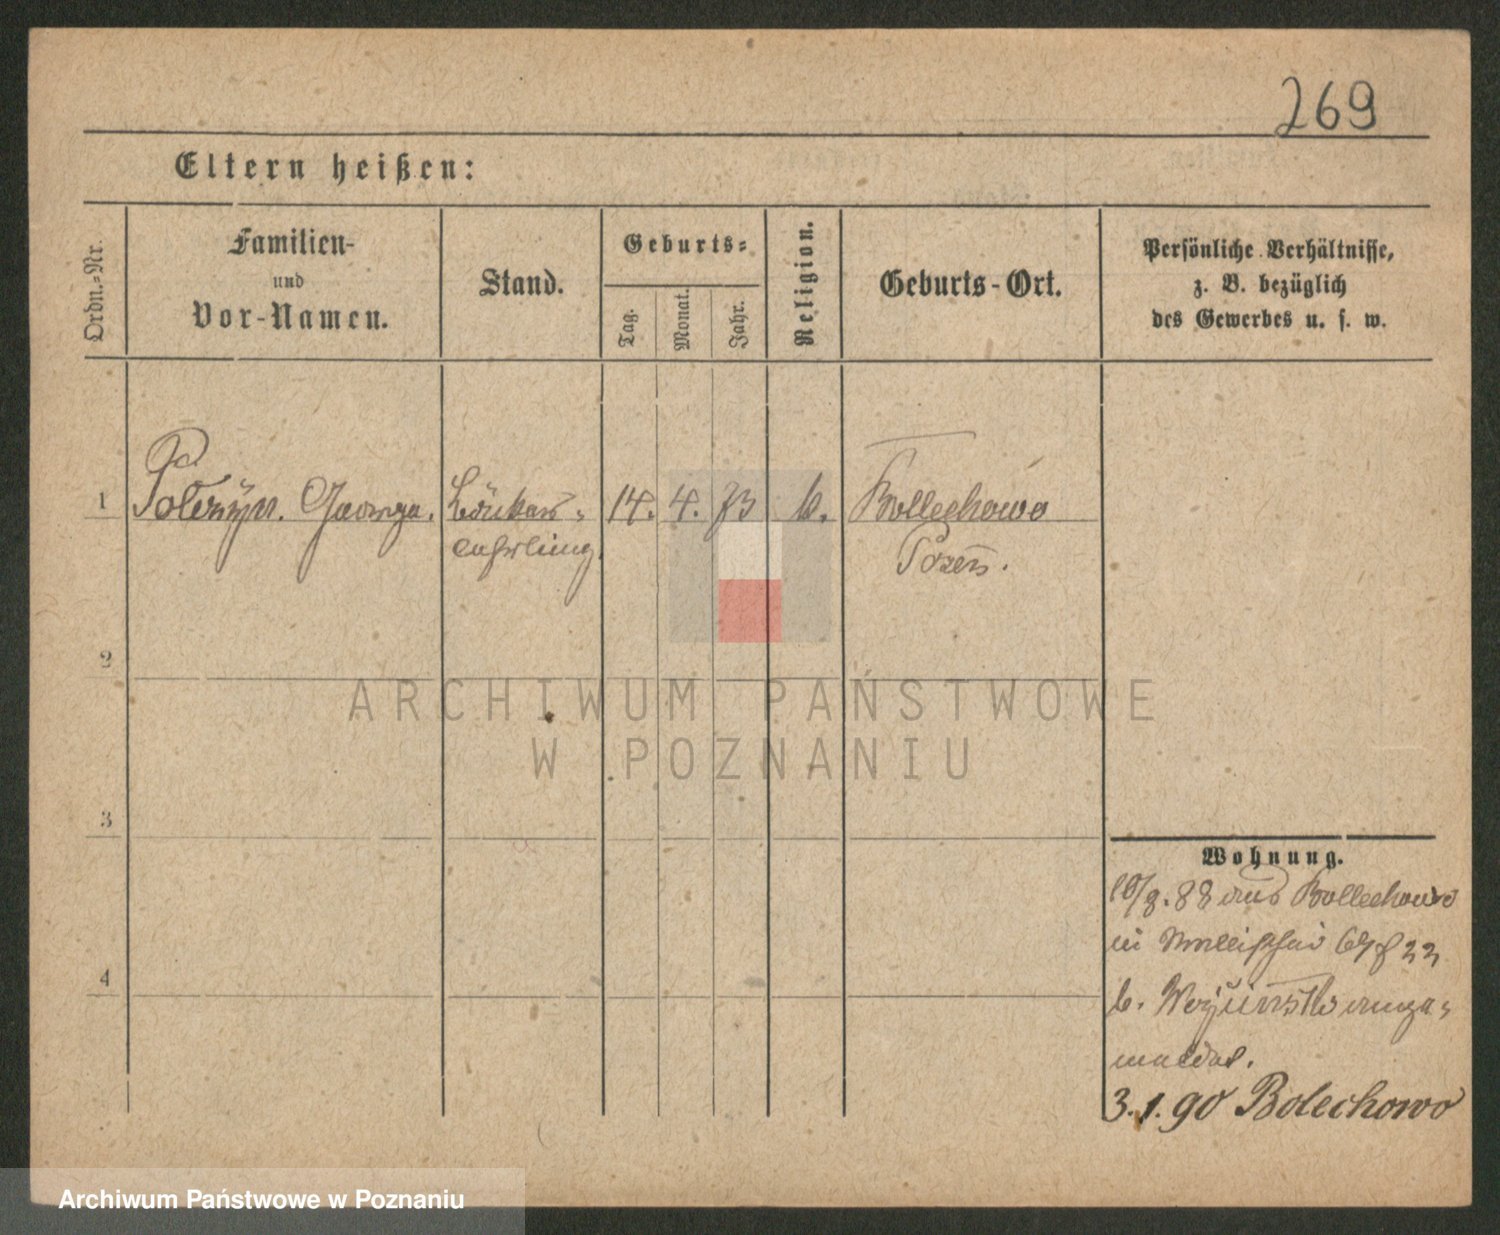 269
Eltern heißen:
Ordn.-Nr.
Familien-
und
Vor-Namen.
Stand.
Geburts-
Tag.
Monat.
Jahr.
Religion.
Geburts-Ort.
Persönliche Verhältnisse,
z. B. bezüglich
des Gewerbes u. s. w.
1
George.
14.
4.
73
k.
Bollechowo
lehrling
Posen.
2
ARCHIWUM PAŃSTWOWE
W POZNANIU
3
Wohnung.
10/9. 88 aus Bollechowo
in 22
b. ange-
meldet.
4
3.1.90 Bolechowo
Archiwum Państwowe w Poznaniu